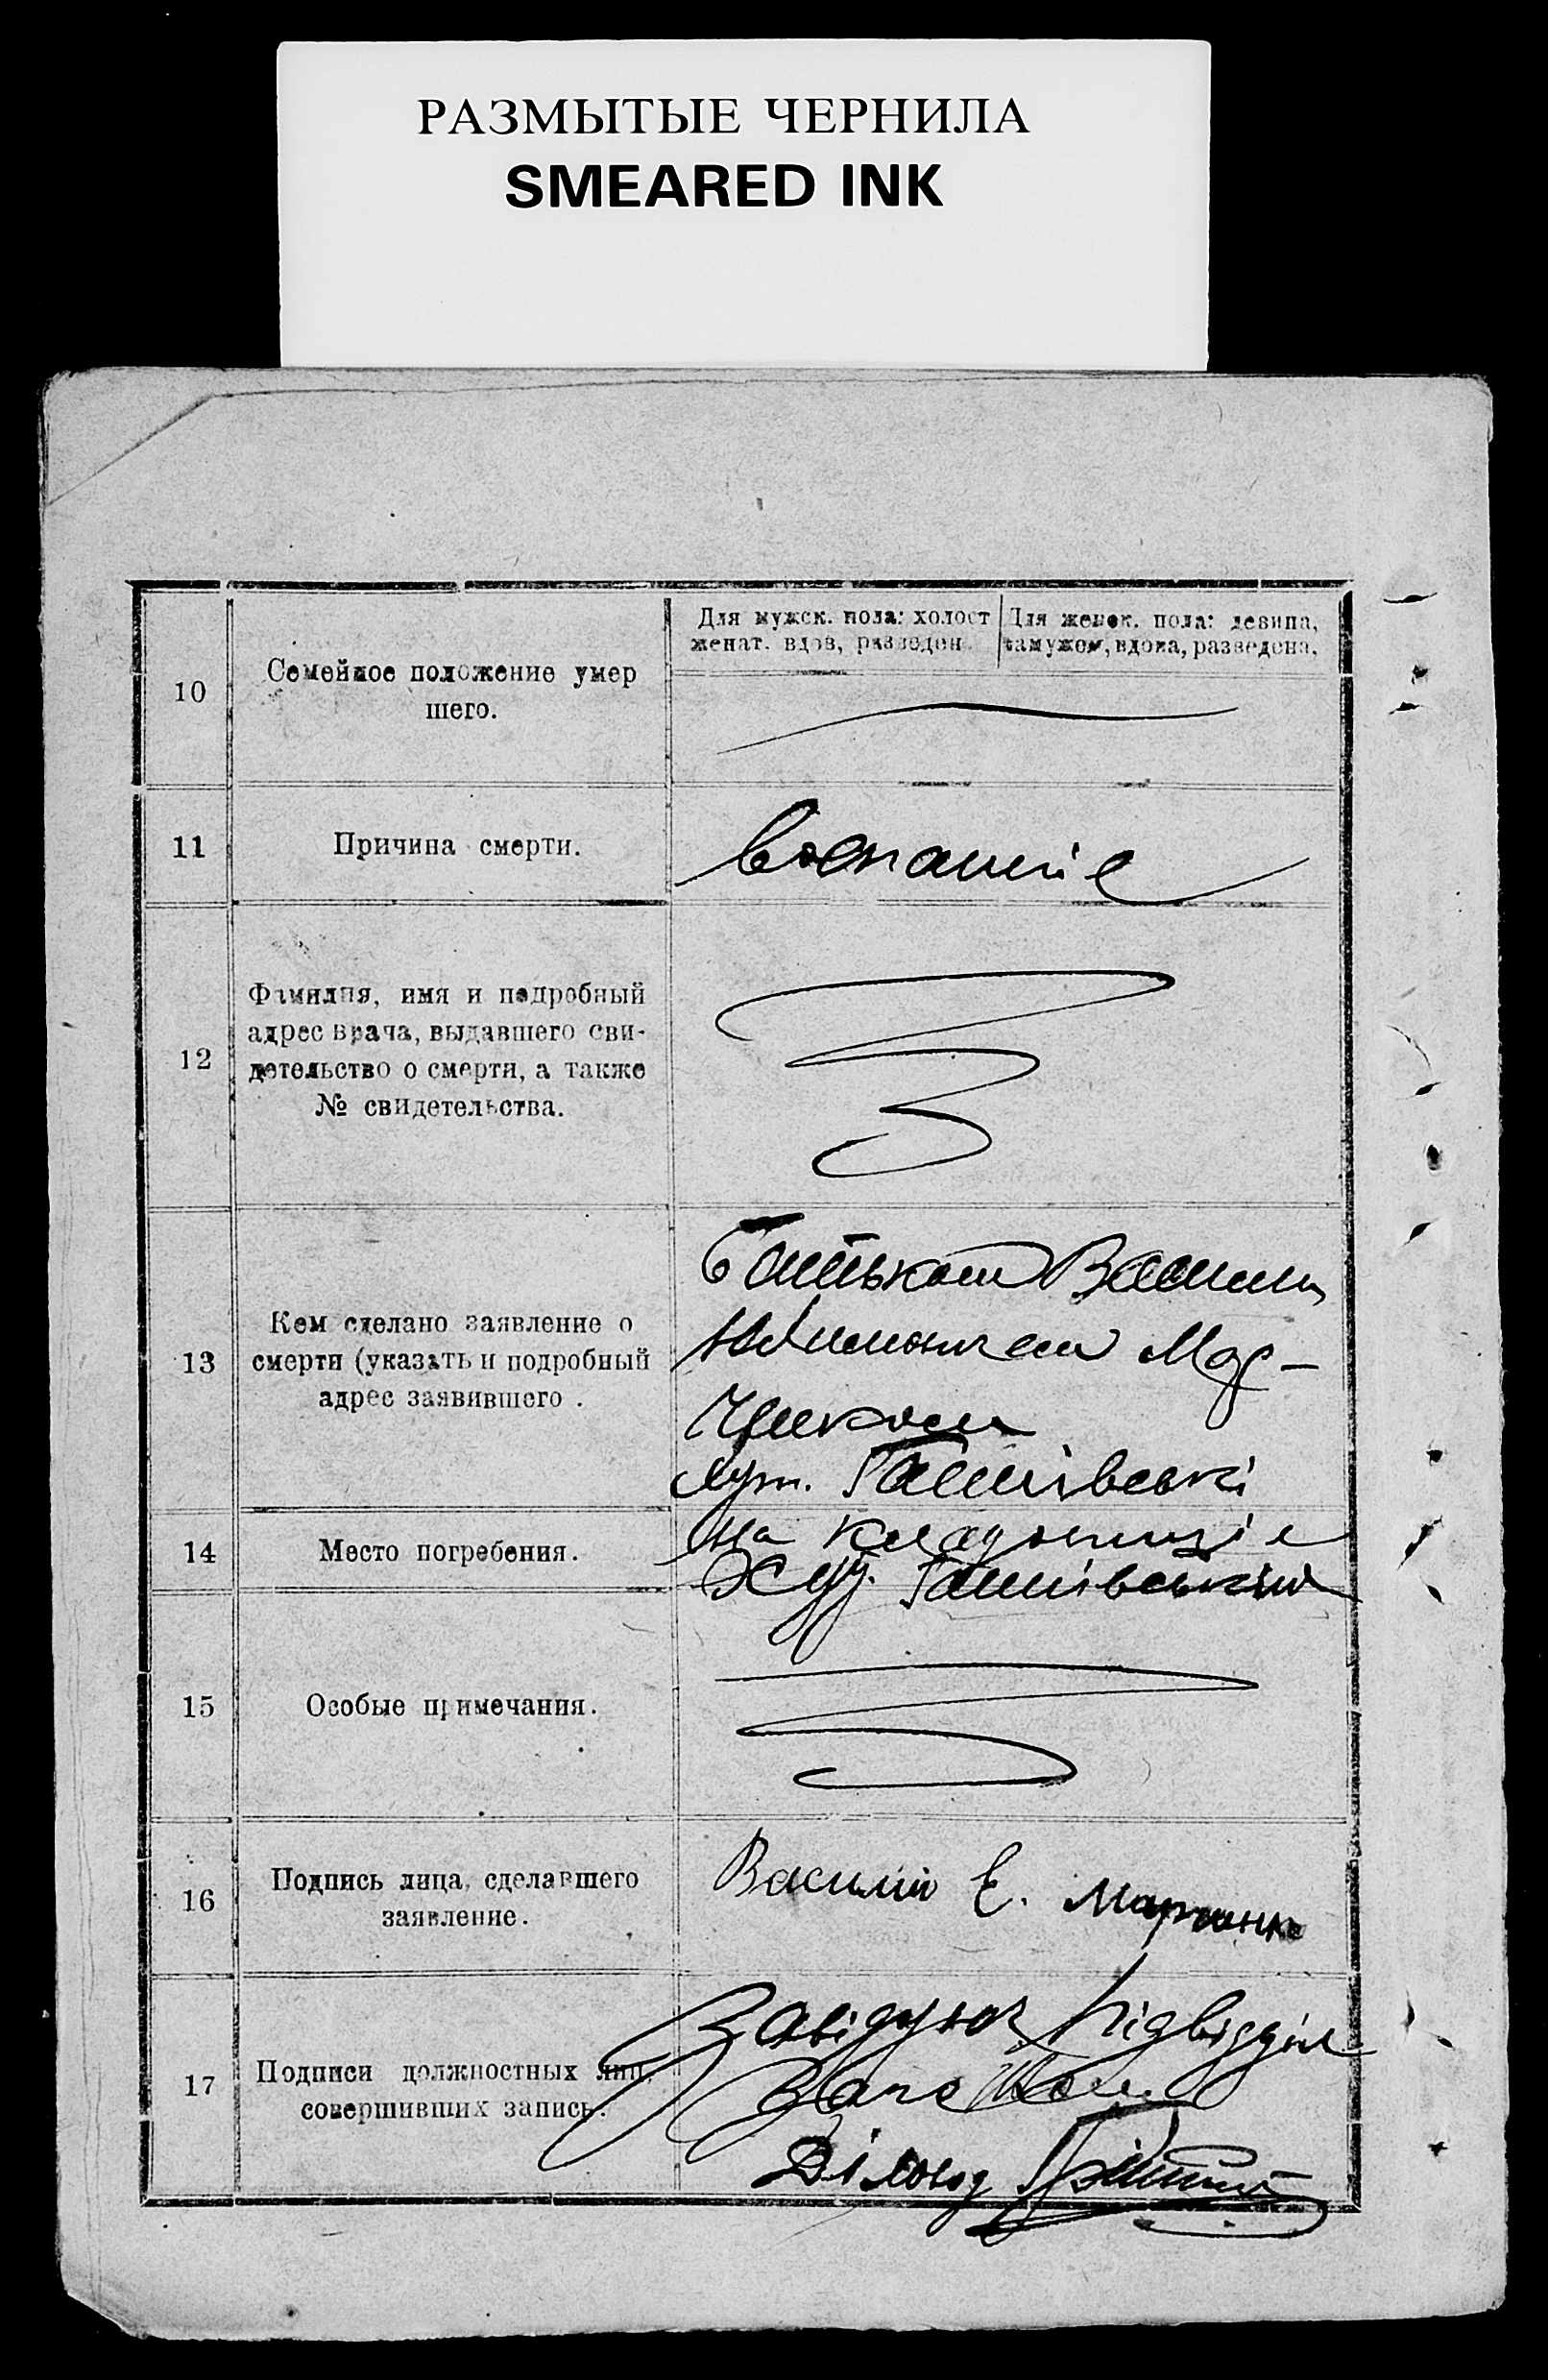 РАЗМЫТЫЕ ЧЕРНИЛА
SMEARED INK
10
Семейное положение умер
шего.
Для мужск. пола: холост
женат. вдов, разведен.
Для женск. пола: девица,
замужем, вдова, разведена.
11
Причина смерти.
12
Фамилия, имя и подробный
адрес врача, выдавшего сви-
детельство о смерти, а также
№ свидетельства.
13
Кем сделано заявление о
смерти (указать и подробный
адрес заявившего .
Батьком Василем
Мар-
ченком
хут. Гашівські
14
Место погребения.
на кладовищі
Хут. Гашівський
15
Особые примечания.
16
Подпись лица, сделавшего
заявление.
Василий Е. Марченко
17
Подписи должностных лиц,
совершивших запись.
Завідуюч Підвідділ
Діловод